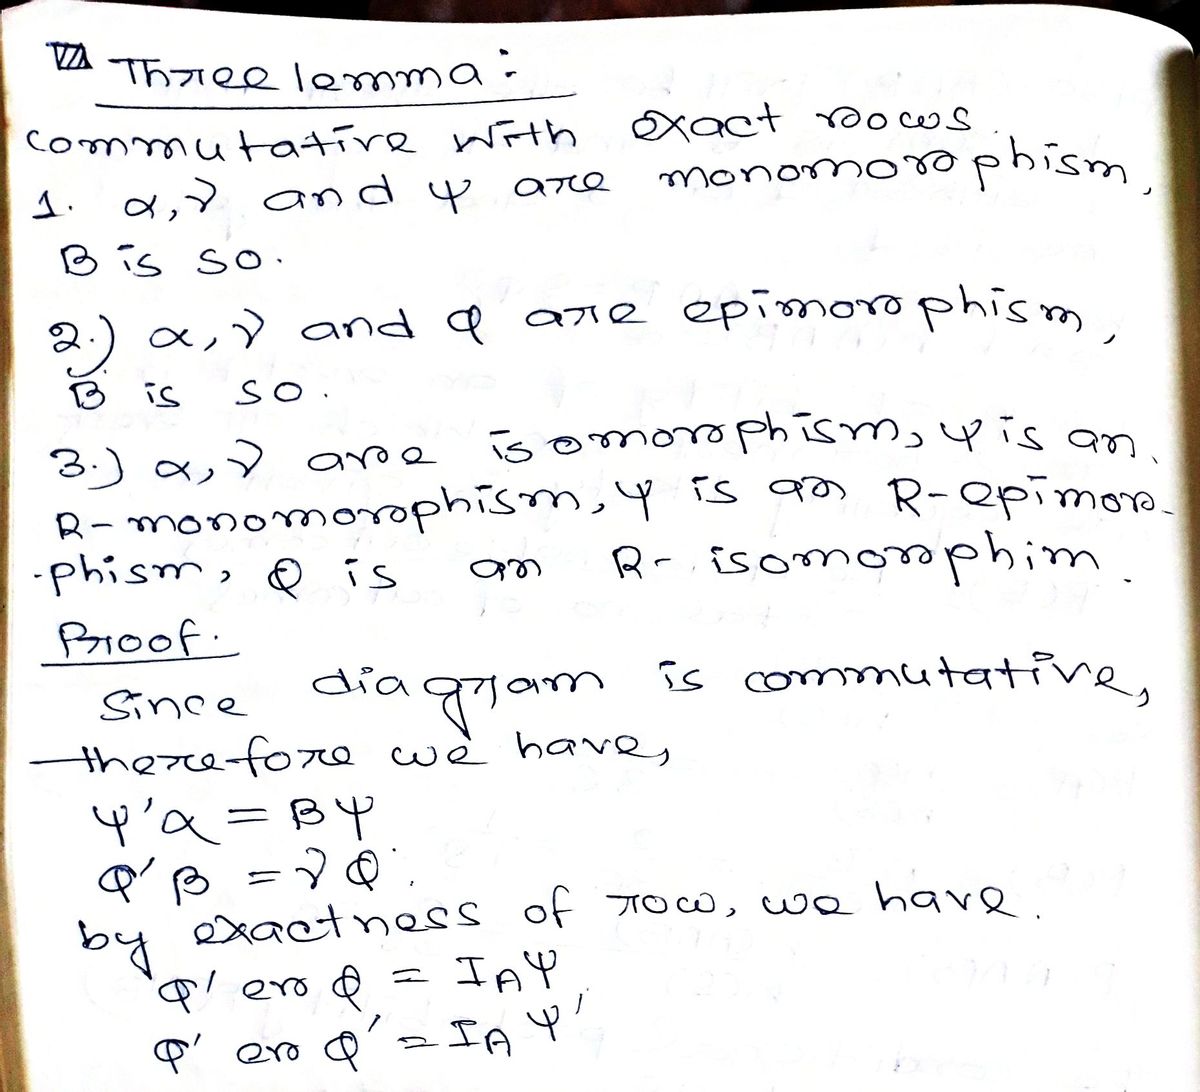 Three lemma:
commutative with exact rows.
1. α, γ and ψ are monomorphism,
B is so.
2.) α, γ and φ are epimorphism,
B is so.
3.) α, γ are isomorphism, ψ is an
R-monomorophism, ψ is an R-epimor-
-phism, φ is an R-isomorophim.
Proof.
Since diagram is commutative,
therefore we have,
ψ'α = βψ
φ'β = γφ.
by exactness of row, we have.
φ' er φ = IA ψ
φ' er φ' = IA ψ'